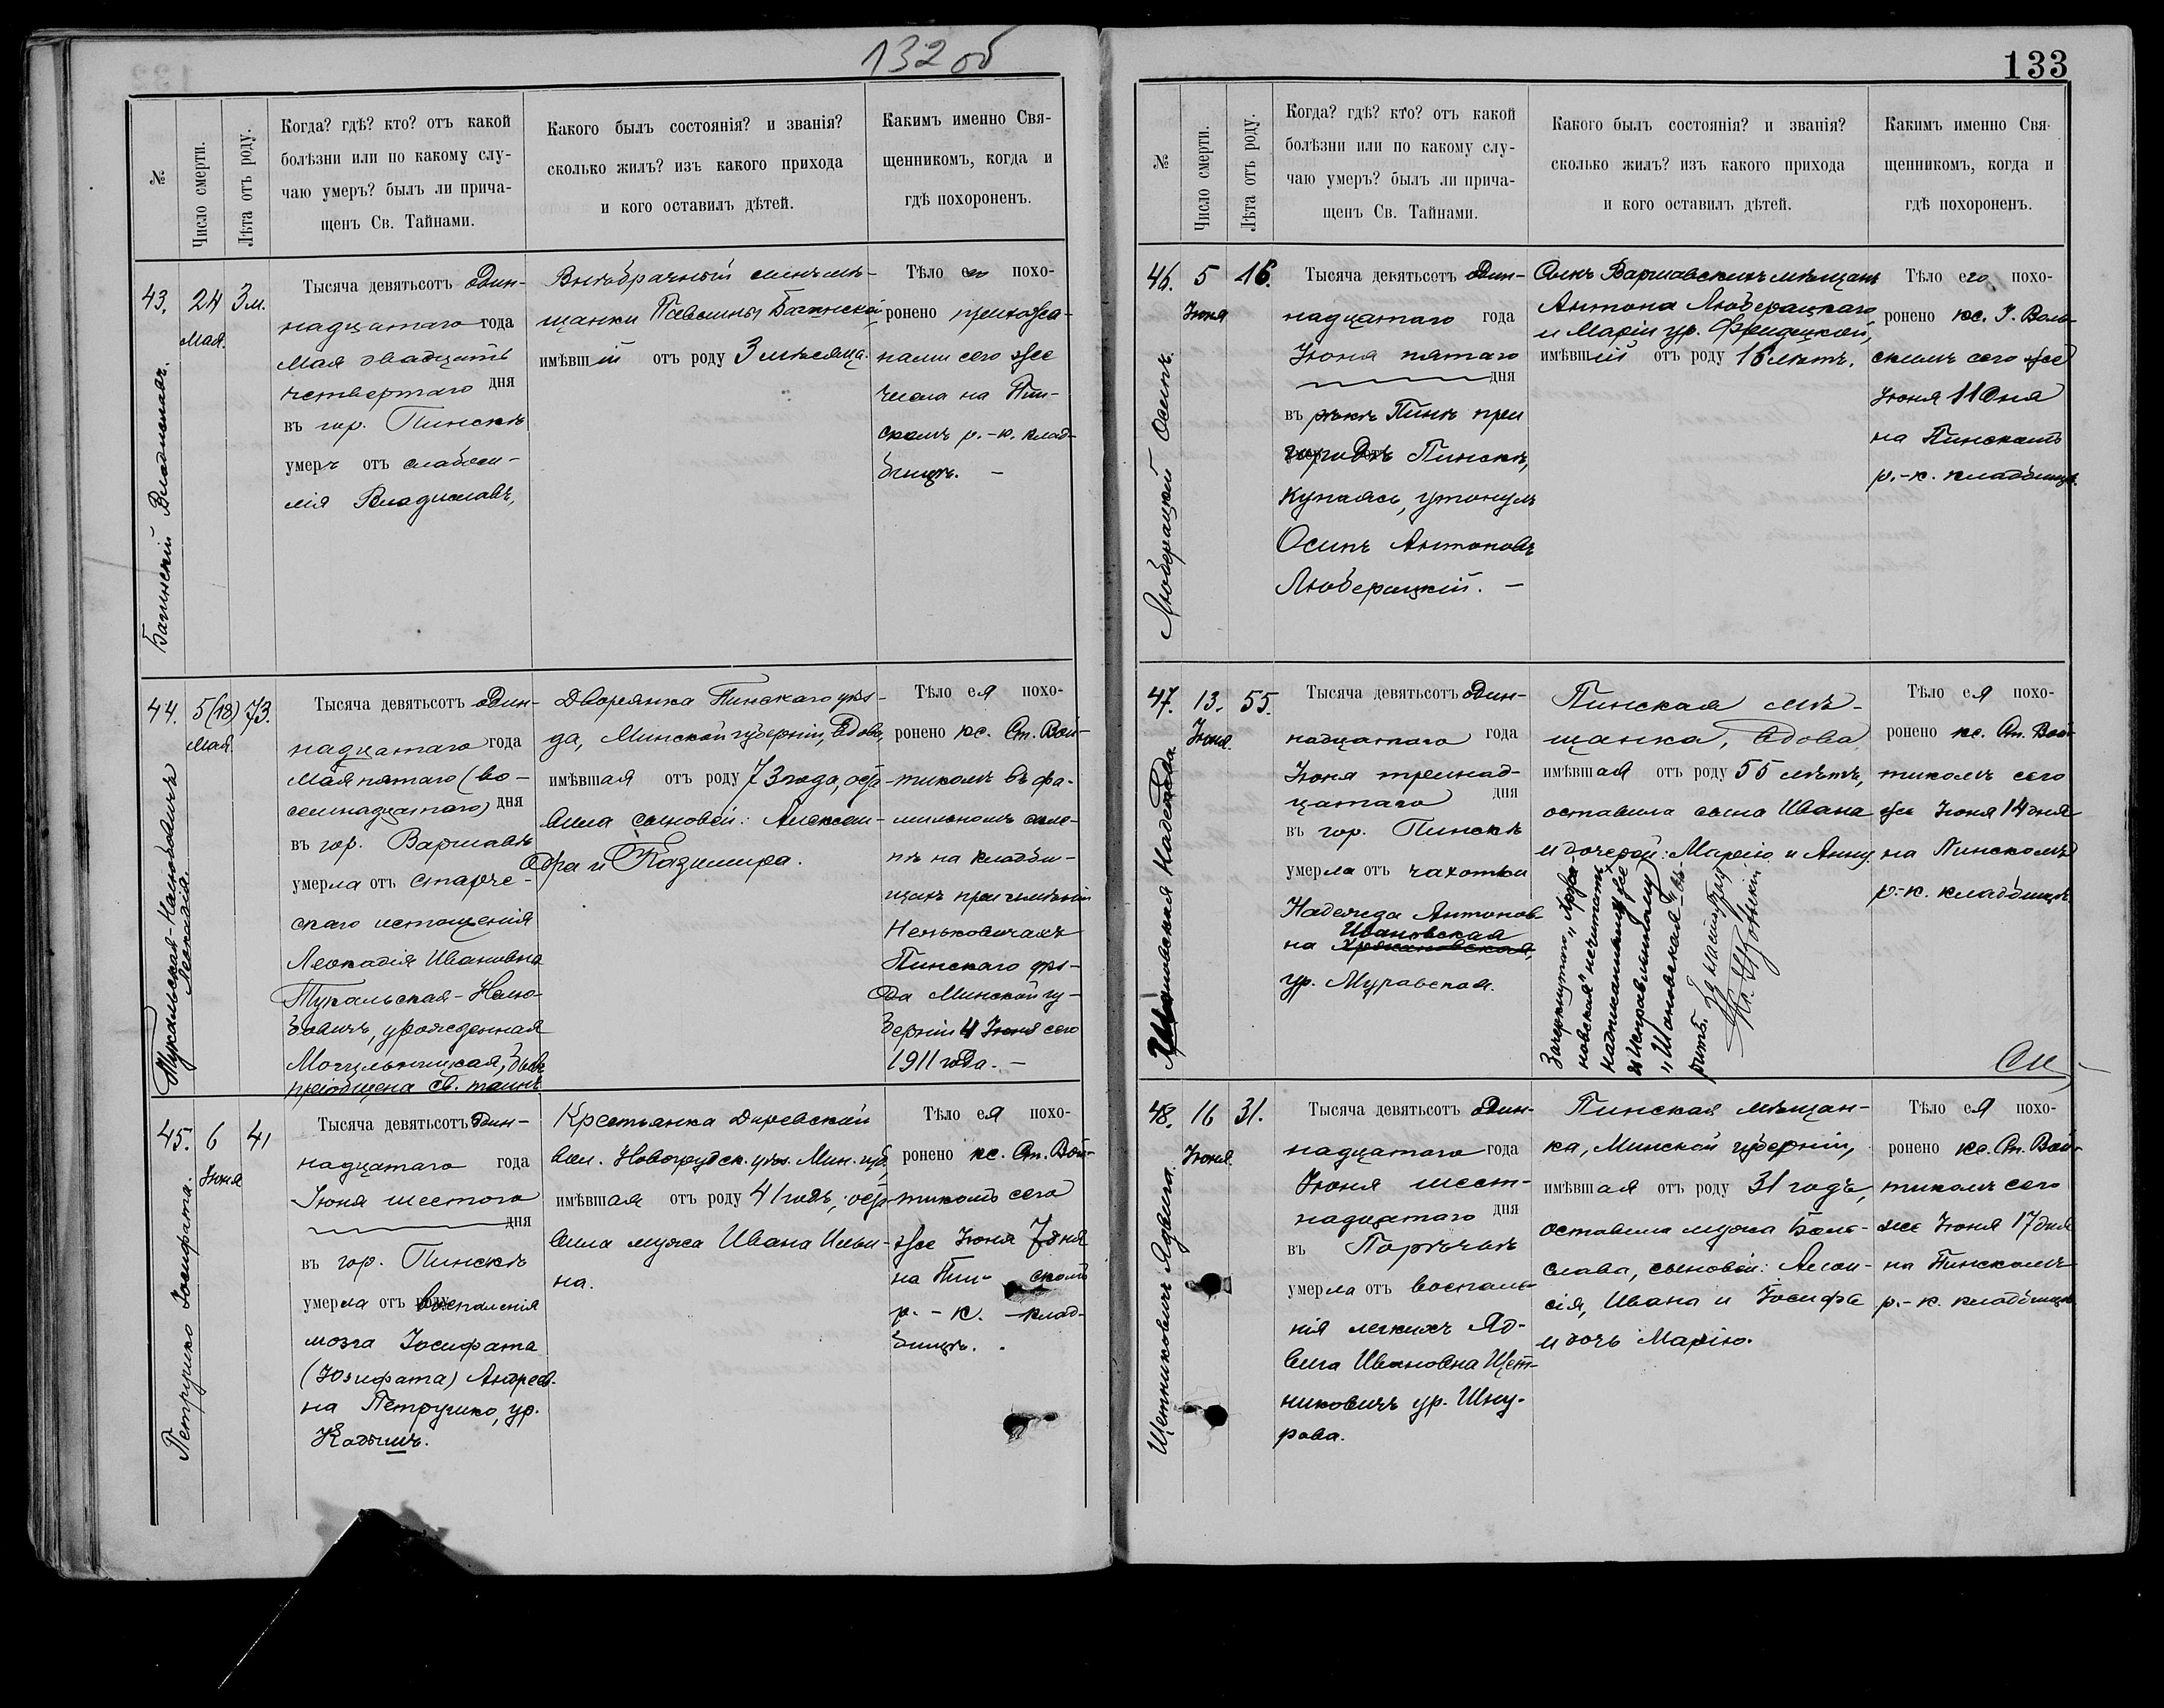 132 об
№
Число смерти.
Лѣта отъ роду.
Когда? гдѣ? кто? отъ какой
болѣзни или по какому слу-
чаю умеръ? былъ ли прича-
щенъ Св. Тайнами.
Какого былъ состоянія? и званія?
сколько жилъ? изъ какого прихода
и кого оставилъ дѣтей.
Какимъ именно Свя-
щенникомъ, когда и
гдѣ похороненъ.
Владиславъ.
43.
24
Мая.
3 м.
Тысяча девятьсотъ один-
надцатаго года
Мая двадцать
четвертаго дня
въ гор. Пинскѣ
умеръ отъ
Владиславъ,
Внѣбрачный сынъ мѣ-
щанки
имѣвшій отъ роду 3 мѣсяца.
Тѣло его похо-
ронено прихожа-
нами сего же
числа на Пин-
скомъ р.-к. клад-
бищѣ. –
Леокадія.
44.
5(18)
Мая.
73.
Тысяча девятьсотъ один-
надцатаго года
Мая пятаго (во-
семнадцатаго) дня
въ гор. Варшавѣ
умерла отъ старче-
скаго истощенія
Леокадія Ивановна
Тукальская-Нелю-
бовичъ, урожденная
Могильницкая, была
пріобщена Св. таинъ
Дворянка Пинскаго уѣз-
да, Минской губерніи, вдова,
имѣвшая отъ роду 73 года, оста-
вила сыновей: Алексан-
дра и Казимира.
Тѣло ея похо-
ронено кс. Ст. Вой-
тикомъ въ фа-
мильномъ скле-
пѣ на кладби-
щѣ при имѣніи
Неньковичахъ
Пинскаго уѣз-
да Минской гу-
берніи 4 Іюня сего
1911 года. –
Петрушко Іосифата.
45.
6
Іюня
41
Тысяча девятьсотъ один-
надцатаго года
Іюня шестого
дня
въ гор. Пинскѣ
умерла отъ воспаленія
мозга Іосифата
(Юзифата) Андреев-
на Петрушко, ур.
Крестьянка Даревской
вол. Новогрудск. уѣз. Мин. губ.
имѣвшая отъ роду 41 годъ, оста-
вила мужа Ивана Ильи-
на.
Тѣло ея похо-
ронено кс. Ст. Вой-
тикомъ сего
же Іюня 7 дня
на Пин- скомъ
р.-к. клад-
бищѣ.
133
№
Число смерти.
Лѣта отъ роду.
Когда? гдѣ? кто? отъ какой
болѣзни или по какому слу-
чаю умеръ? былъ ли прича-
щенъ Св. Тайнами.
Какого былъ состоянія? и званія?
сколько жилъ? изъ какого прихода
и кого оставилъ дѣтей.
Какимъ именно Свя-
щенникомъ, когда и
гдѣ похороненъ.
Люберацкій Осипъ.
46.
5
Іюня
16.
Тысяча девятьсотъ один-
надцатаго года
Іюня пятаго
дня
въ рѣкѣ Пинѣ при
городѣ Пинскѣ,
купаясь, утонулъ
Осипъ Антоновъ
Люберацкій. –
Сынъ Варшавскихъ мѣщанъ
Антона Люберацкаго
и Маріи ур.
имѣвшій отъ роду 16 лѣтъ.
Тѣло его похо-
ронено кс.
скимъ сего же
Іюня 11 дня
на Пинскомъ
р.-к. кладбищѣ.
Надежда.
47.
13.
Іюня.
55.
Тысяча девятьсотъ один-
надцатаго года
Іюня тринад-
цатаго дня
въ гор. Пинскѣ
умерла отъ чахотки
Надежда Антонов-
на
ур. Муравская.
Пинская мѣ-
щанка, вдова
имѣвшая отъ роду 55 лѣтъ,
оставила сына Ивана
и дочерей: Марію и Анну
Зачеркнутое
не читать
Тѣло ея похо-
ронено кс. Ст. Вой-
тикомъ сего
же Іюня 14 дня
на Пинскомъ
р.-к. кладбищѣ.
Щетниковичъ Ядвига.
48.
16
Іюня.
31.
Тысяча девятьсотъ один-
надцатаго года
Іюня шест-
надцатаго дня
въ Порѣчьѣ
умерла отъ воспале-
нія легкихъ Яд-
вига Ивановна Щет-
никовичъ ур. Шну-
рова.
Пинская мѣщан-
ка, Минской губерніи,
имѣвшая отъ роду 31 годъ,
оставила мужа Боле-
слава, сыновей: Алои-
сія, Ивана и Іосифа
и дочь Марію.
Тѣло ея похо-
ронено кс. Ст. Вой-
тикомъ сего
же Іюня 17 дня
на Пинскомъ
р.-к. кладбищѣ